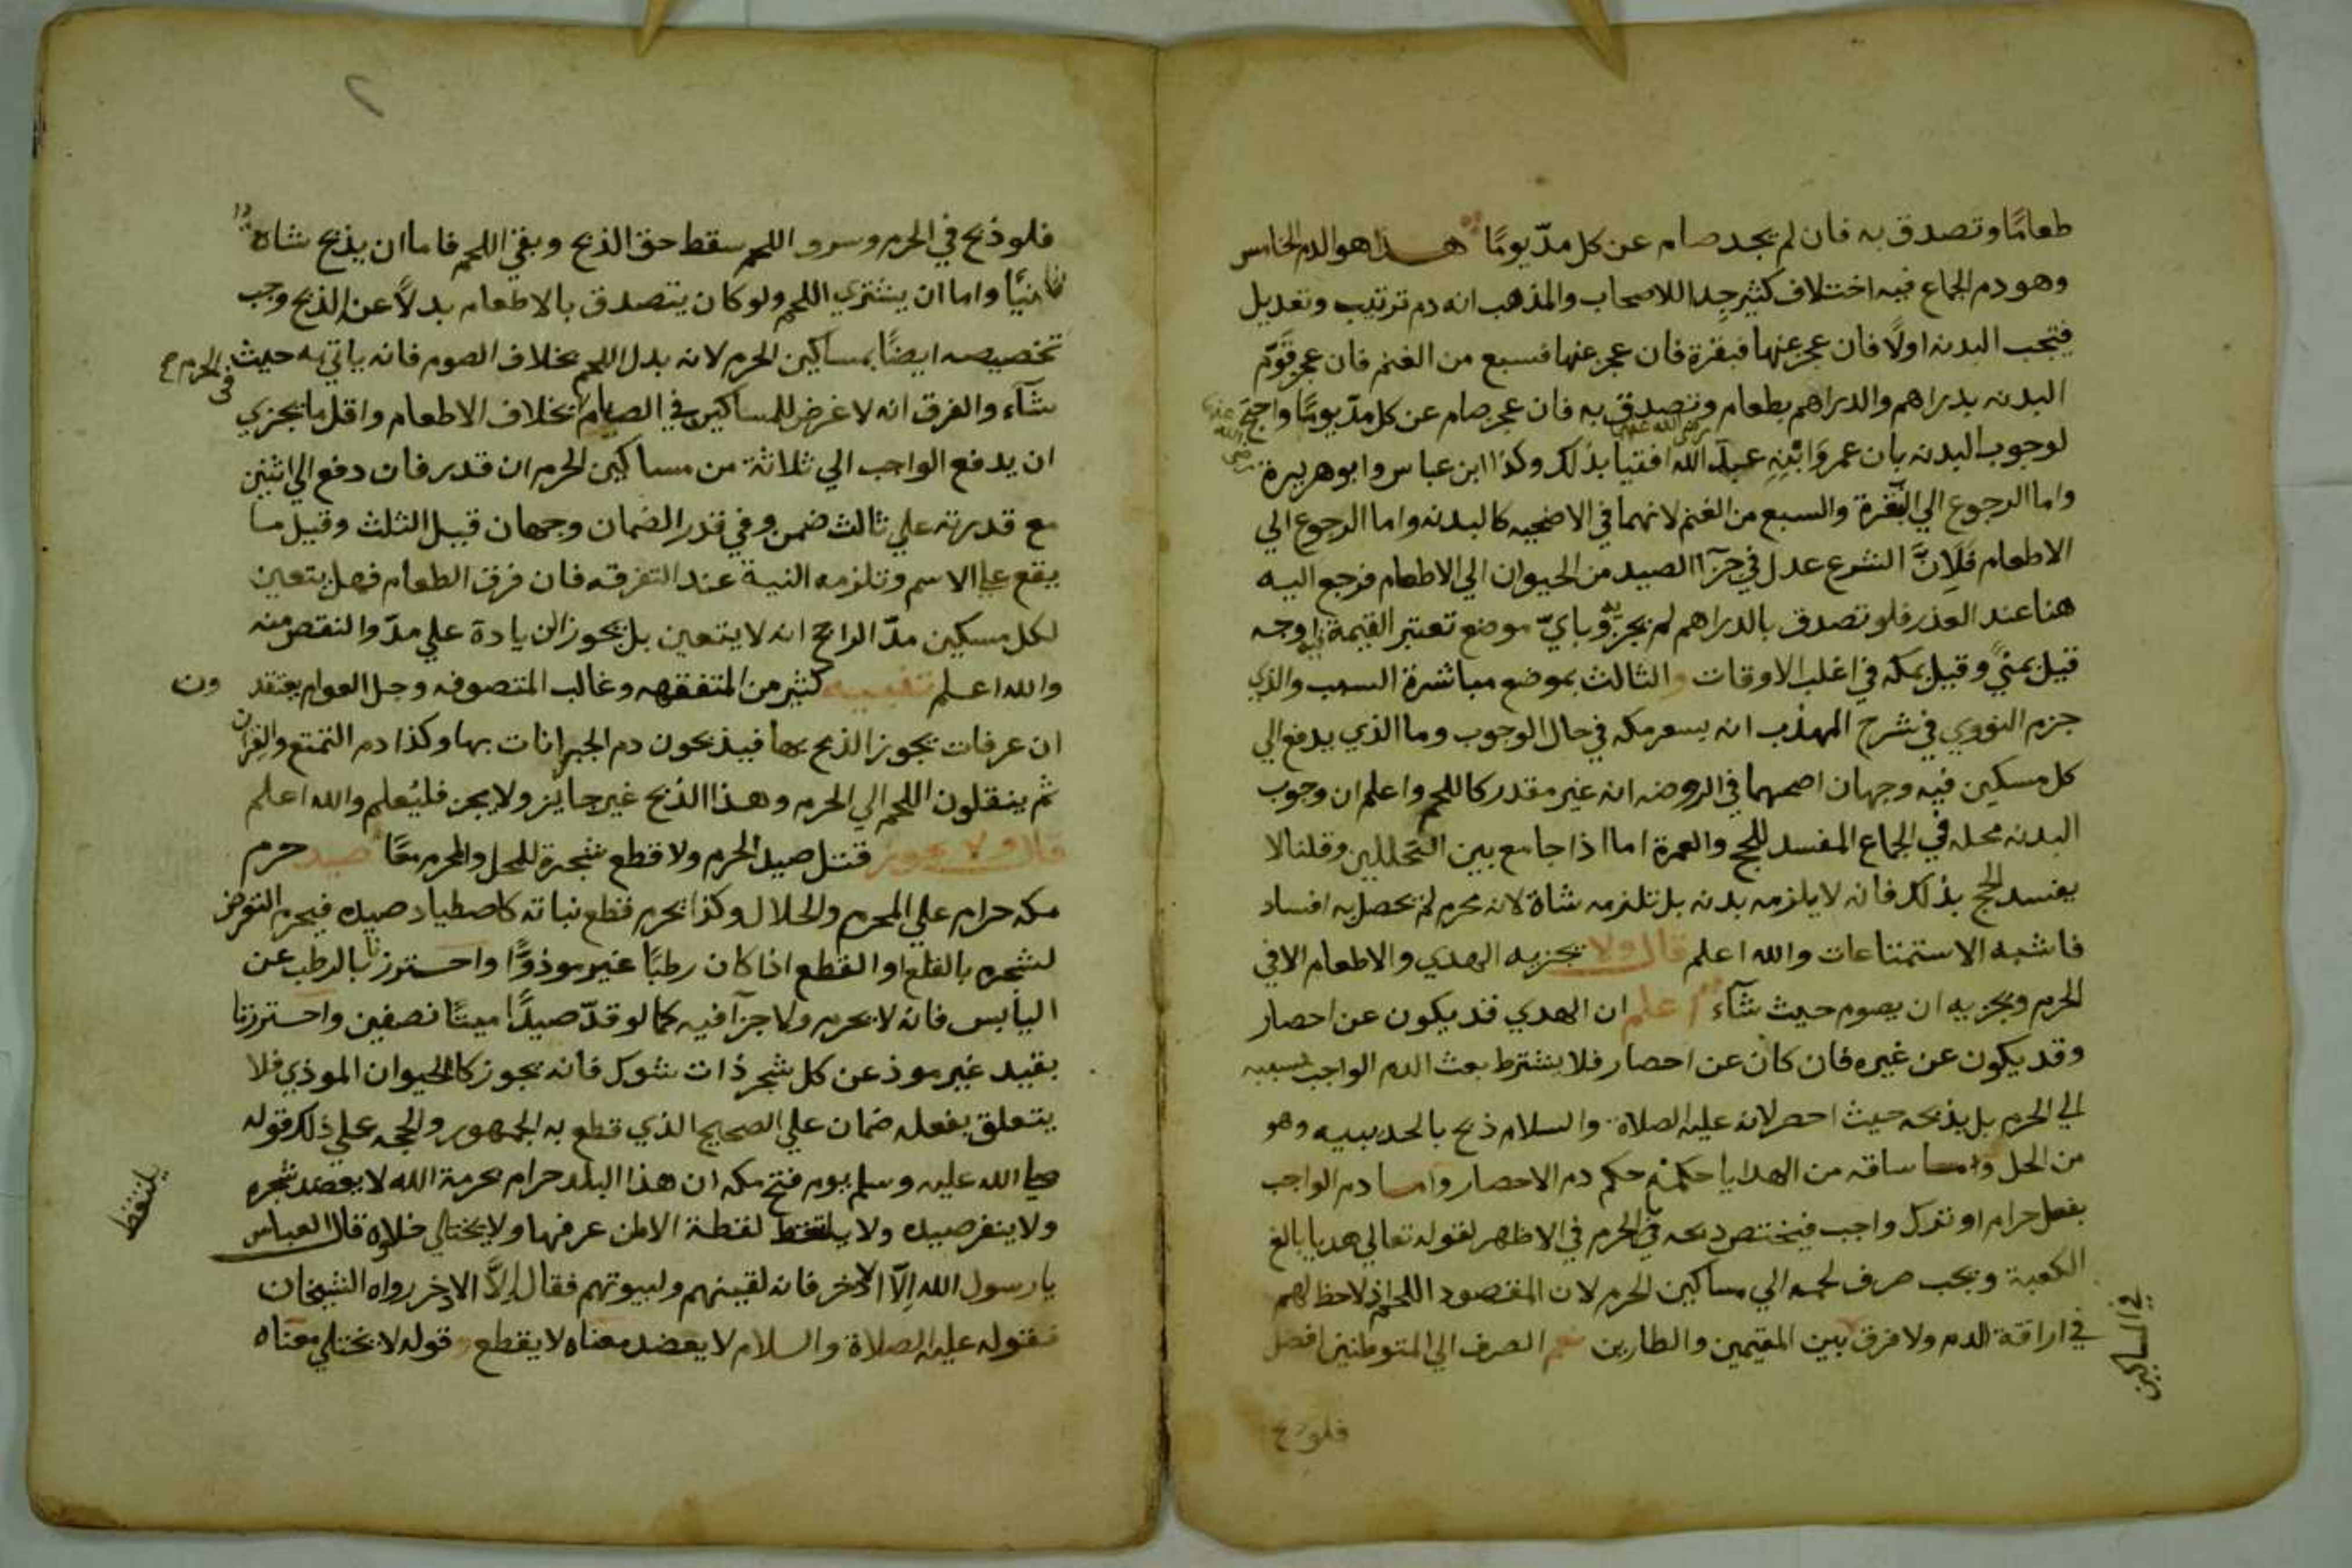 طعامًا وتصدق به فان لم يجد صام عن كل مدّ يومًا هذا هو الدم الخامس
وهو دم الجماع فيه اختلاف كثير جدا للاصحاب والمذهب انه دم ترتيب وتعديل
فتجب البدنه اولًا فان عجز عنها فبقرة فان عجز عنها فسبع من الغنم فان عجز قَوَّم
البدنه بدراهم والدراهم بطعام وتصدق به فان عجز صام عن كل مدّ يومًا واحتج
لوجوب البدنه بان عمر وَابْنِهِ عبد الله رضي الله عنهما افتيا بذلك وكذا ابن عباس وابو هريرة
واما الرجوع الي البقرة والسبع من الغنم لانهما في الاضحيه كالبدنه واما الرجوع الي
الاطعام فَلِانَّ الشرع عدل في جزآ الصيد من الحيوان الي الاطعام فرجع اليه
هنا عند العذر فلو تصدق بالدراهم لم يجزيه وبايّ موضع تعتبر القيمة اوجه
قيل بمني وقيل بمكه في اغلب الاوقات والثالث بموضع مباشرة السبب والذي
جزم النووي في شرح المهذب انه بسعر مكه في حال الوجوب وما الذي يدفع الي
كل مسكين فيه وجهان اصحهما في الروضه انه غير مقدر كاللحم واعلم ان وجوب
البدنه محله في الجماع المفسد للحج والعمرة اما اذا جامع بين التحللين وقلنا لا
يفسد الحج بذلك فانه لا يلزمه بدنه بل تلزمه شاة لانه محرم لم يحصل به افساد
فاشبه الاستمتاعات والله اعلم قال ولا يجزيه الهدي والاطعام الا في
الحرم ويجزيه ان يصوم حيث شآء اعلم ان الهدي قد يكون عن احصار
وقد يكون عن غيره فان كان عن احصار فلا يشترط بعث الدم الواجب بسببه
الي الحرم بل يذبحه حيث احصر لانه عليه الصلاة والسلام ذبح بالحديبيه وهو
من الحل وما ساقه من الهدايا حكمه حكم دم الاحصار واما دم الواجب
بفعل حرام او ترك واجب فيختص ذبحه في الحرم في الاظهر لقوله تعالي هديا بالغ
الكعبة ويجب صرف لحمه الي مساكين الحرم لان المقصود اللحم اذ لا حظ لهم
في اراقة الدم ولا فرق بين المقيمين والطارين نعم الصرف الي المتوطنين افضل
في المساكين
فلو ذبح
فلو ذبح في الحرم وسرق اللحم سقط حق الذبح وبقي اللحم فاما ان يذبح شاة
ثانيًا واما ان يشتري اللحم ولو كان يتصدق بالاطعام بدلًا عن الذبح وجب
تخصيصه ايضًا بمساكين الحرم لانه بدل اللحم بخلاف الصوم فانه ياتي به حيث
في الحرم
شآء والفرق انه لا غرض للمساكين في الصيام بخلاف الاطعام واقل ما يجزي
ان يدفع الواجب الي ثلاثة من مساكين الحرم ان قدر فان دفع الي اثنين
مع قدرته علي ثالث ضمن وفي قدر الضمان وجهان قيل الثلث وقيل ما
يقع عليه الاسم وتلزمه النية عند التفرقه فان فرق الطعام فهل يتعين
لكل مسكين مدّ الراجح انه لا يتعين بل يجوز الزيادة علي مدّ والنقص منه
والله اعلم تنبيه كثير من المتفقهه وغالب المتصوفه وجل العوام يعتقدون
ان عرفات يجوز الذبح بها فيذبحون دم الجبرانات بها وكذا دم التمتع والقران
ثم ينقلون اللحم الي الحرم وهذا الذبح غير جايز ولا يجزي فليُعلم والله اعلم
قال ولا يجوز قتل صيد الحرم ولا قطع شجرة للمحل والمحرم معًا صيد حرم
مكه حرام علي المحرم والحلال وكذا يحرم قطع نباته كاصطياد صيده فيحرم التعرض
لشجره بالقلع او القطع اذا كان رطبًا غير موذوًّا واحترزنا بالرطب عن
اليابس فانه لا يحرم ولا جزآ فيه كما لو قدّ صيدًا ميتًا نصفين واحترزنا
بقيد غير موذ عن كل شجر ذات شوك فانه يجوز كالحيوان الموذي فلا
يتعلق بفعله ضمان علي الصحيح الذي قطع به الجمهور والحجه علي ذلك قوله
صلي الله عليه وسلم يوم فتح مكه ان هذا البلد حرام بحرمة الله لا يعضد شجره
ولا ينفر صيده ولا يلتقط لقطة الا لمن عرفها ولا يختلي خلاه قال العباس
يلتقط
يا رسول الله اِلّا الاذخر فانه لقينهم ولبيوتهم فقال اِلَّا الاذخر رواه الشيخان
فقوله عليه الصلاة والسلام لا يعضد معناه لا يقطع وقوله لا يختلي معناه